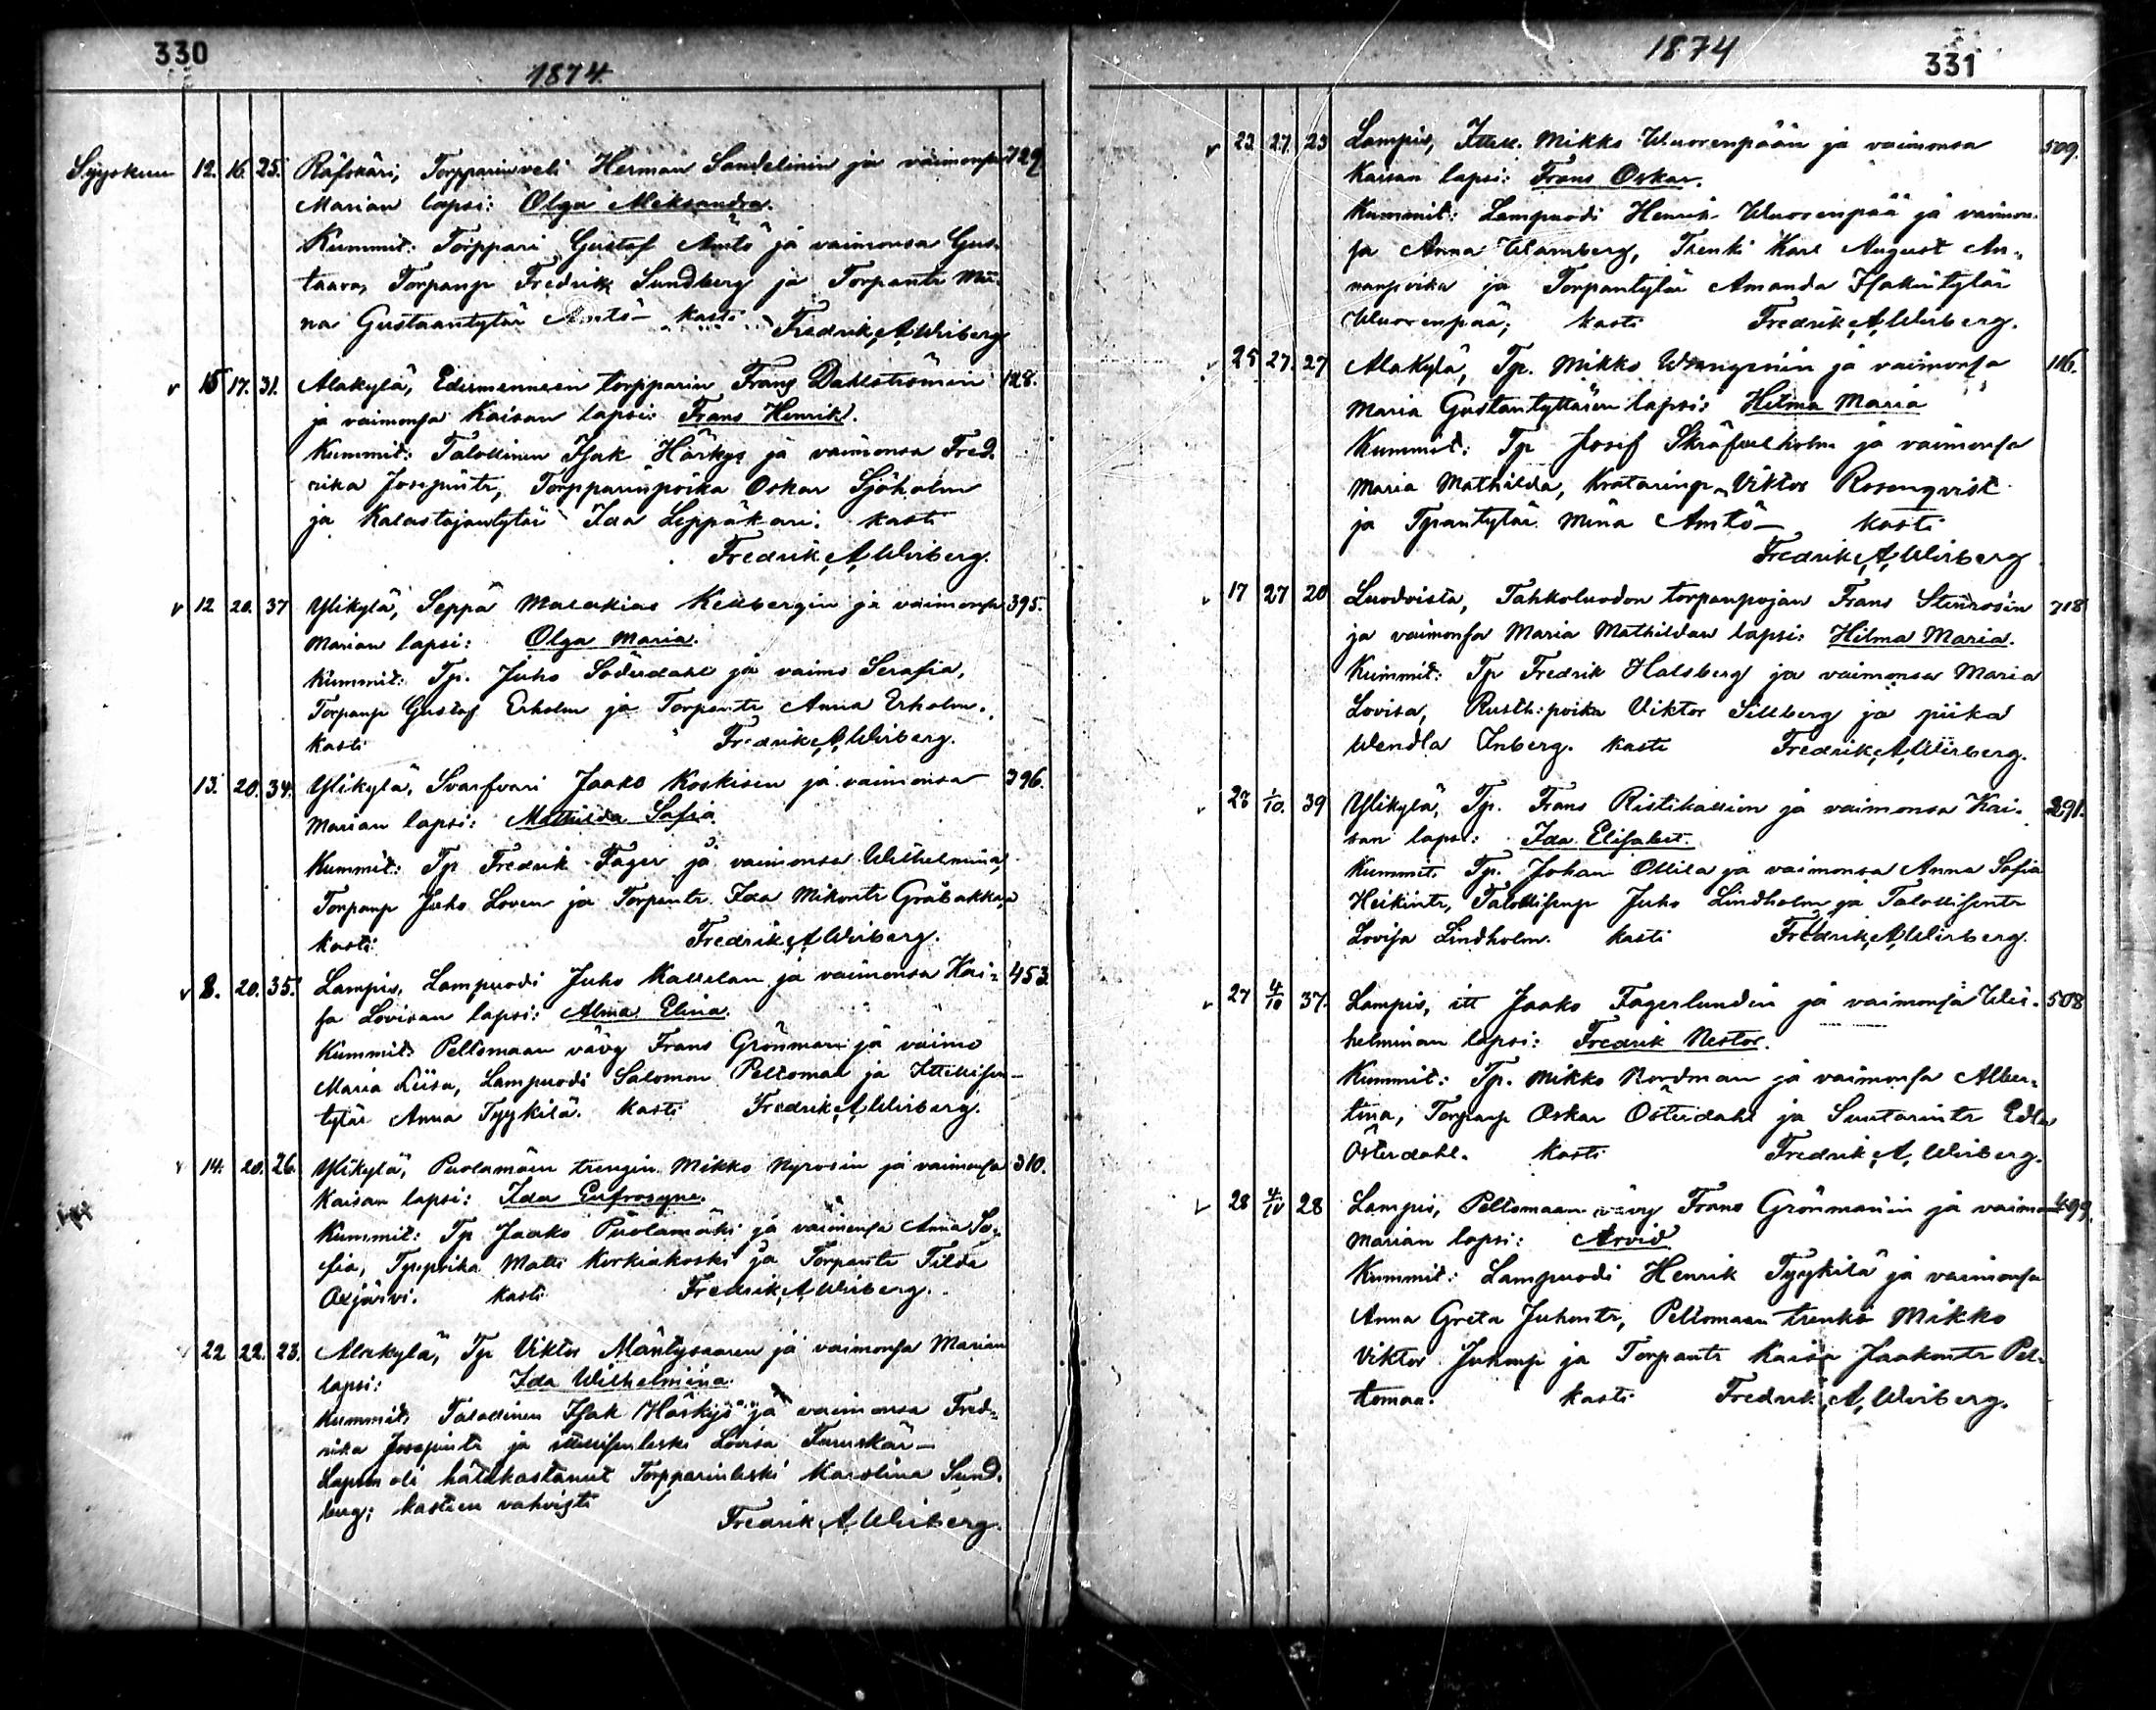 330
1874
Syyskuu 12. 16. 25. Räfskäri, Torpparinveli Herman Sandelinin ja vaimonsa 729
Marian lapsi: Olga Aleksandra.
Kummit: Torppari Gustaf Amtö ja vaimonsa Gus-
taava, Torpanp Fredrik Sundberg ja Torpantr Mii-
na Gustaantytär Amtö – kasti
Fredrik A Wirberg
v 15 17. 31. Alakylä, Torpparin Frans Dahlströmin 128.
ja vaimonsa Kaisan lapsi: Frans Henrik.
Kummit: Talollinen Isak Härkys ja vaimonsa Fred-
rika Josepintr, Torpparinpoika Oskar Sjöholm
ja Kalastajantytär Ida Leppäkari. kasti
Fredrik A Wirberg.
v 12 20. 37 Ylikylä, Seppä Malakias Kellbergin ja vaimonsa 395.
Marian lapsi: Olga Maria.
Kummit: Tp. Juho Söderdahl ja vaimo Serafia,
Torpanp Gustaf Erholm ja Torpantr Anna Erholm.
kasti Fredrik A Wirberg.
13. 20. 34. Ylikylä, Svarfvari Jaako Koskisen ja vaimonsa 396.
Marian lapsi: Mathilda Sofia.
Kummit: Tp Fredrik Fager ja vaimonsa Wilhelmina,
Torpanp Juho Loven ja Torpantr Ida Mikontr Gråbakka,
kasti Fredrik A Wirberg.
v 8. 20. 35. Lampis, Lampuodi Juho Kallelan ja vaimonsa Kai- 453
sa Lovisan lapsi: Alma Elina.
Kummit: Peltomaan vävy Frans Grönman ja vaimo
Maria Liisa, Lampuodi Salomon Peltomaa ja Itsellisen-
tytär Anna Tyykilä. kasti Fredrik A Wirberg.
v 14. 20. 26. Ylikylä, Puolamäen trengin Mikko Nyrosin ja vaimonsa 310.
Kaisan lapsi: Ida Eufrosyne.
Kummit: Tp Jaako Puolamäki ja vaimonsa Anna So-
fia, Tp.poika Matti Korkiakoski ja Torpantr Tilda
kasti Fredrik A Wirberg.
22 22. 23. Alakylä, Tp Viktor Mäntysaaren ja vaimonsa Marian
lapsi: Ida Wilhelmina.
Kummit: Talollinen Isak Härkys ja vaimonsa Fred-
rika Josepintr ja itsellisenleski Lovisa Furuskär –
Lapsen oli hätäkastanut Torpparinleski Karolina Sund-
berg; kasteen vahvisti
Fredrik A Wirberg.
1874
331
v 23. 27. 23 Lampis, Itsell. Mikko Wuorenpään ja vaimonsa 509.
Kaisan lapsi: Frans Oskar.
Kummit: Lampuodi Henrik Wuorenpää ja vaimon-
sa Anna Wlamberg, Trenki Karl August
ja Torpantytär Amanda Isakintytär
Wuorenpää; kasti Fredrik A Wirberg.
25 27. 27 Alakylä, Tp. Mikko ja vaimonsa 116.
Maria Gustantyttären lapsi: Hilma Maria
Kummit: Tp Josif ja vaimonsa
Maria Mathilda, Viktor Rosenqvist
ja Tpantytär Mina Amtö – kasti
Fredrik A Wirberg
v 17 27 20 Luodoista, Tahkoluodon torpanpojan Frans Stenrosin 718
ja vaimonsa Maria Mathildan lapsi: Hilma Maria.
Kummit: Tp Fredrik Halsberg ja vaimonsa Maria
Lovisa, Rusth:poika Viktor Sillberg ja piika
Wendla Inberg. kasti Fredrik A Wirberg.
v 23 1/10. 39 Ylikylä, Tp. Frans Ristikallion ja vaimonsa Kai- 291.
san lapsi: Ida Elisabet.
Kummit: Tp. Johan Ollila ja vaimonsa Anna Sofia
Heikintr, Talollisenp Juho Lindholm ja Talollisentr
Lovisa Lindholm. kasti Fredrik A Wirberg.
v 27 4/10 37. Lampis, itt Jaako Fagerlundin ja vaimonsa Wil- 508
helminan lapsi: Fredrik Nestor.
Kummit: Tp. Mikko Nordman ja vaimonsa Alber-
tina, Torpanp Oskar Österdahl ja Suutarintr Edla
Österdahl. kasti Fredrik A. Wirberg.
v 28 4/10 28 Lampis, Peltomaan vävy Frans Grönmanin ja vaimon 499.
Marian lapsi: Arvid
Kummit: Lampuodi Henrik Tyykilä ja vaimonsa
Anna Greta Juhontr, Peltomaan trenki Mikko
Viktor Juhonp ja Torpantr Kaisa Jaakontr Pel-
tomaa. kasti Fredrik A. Wirberg.